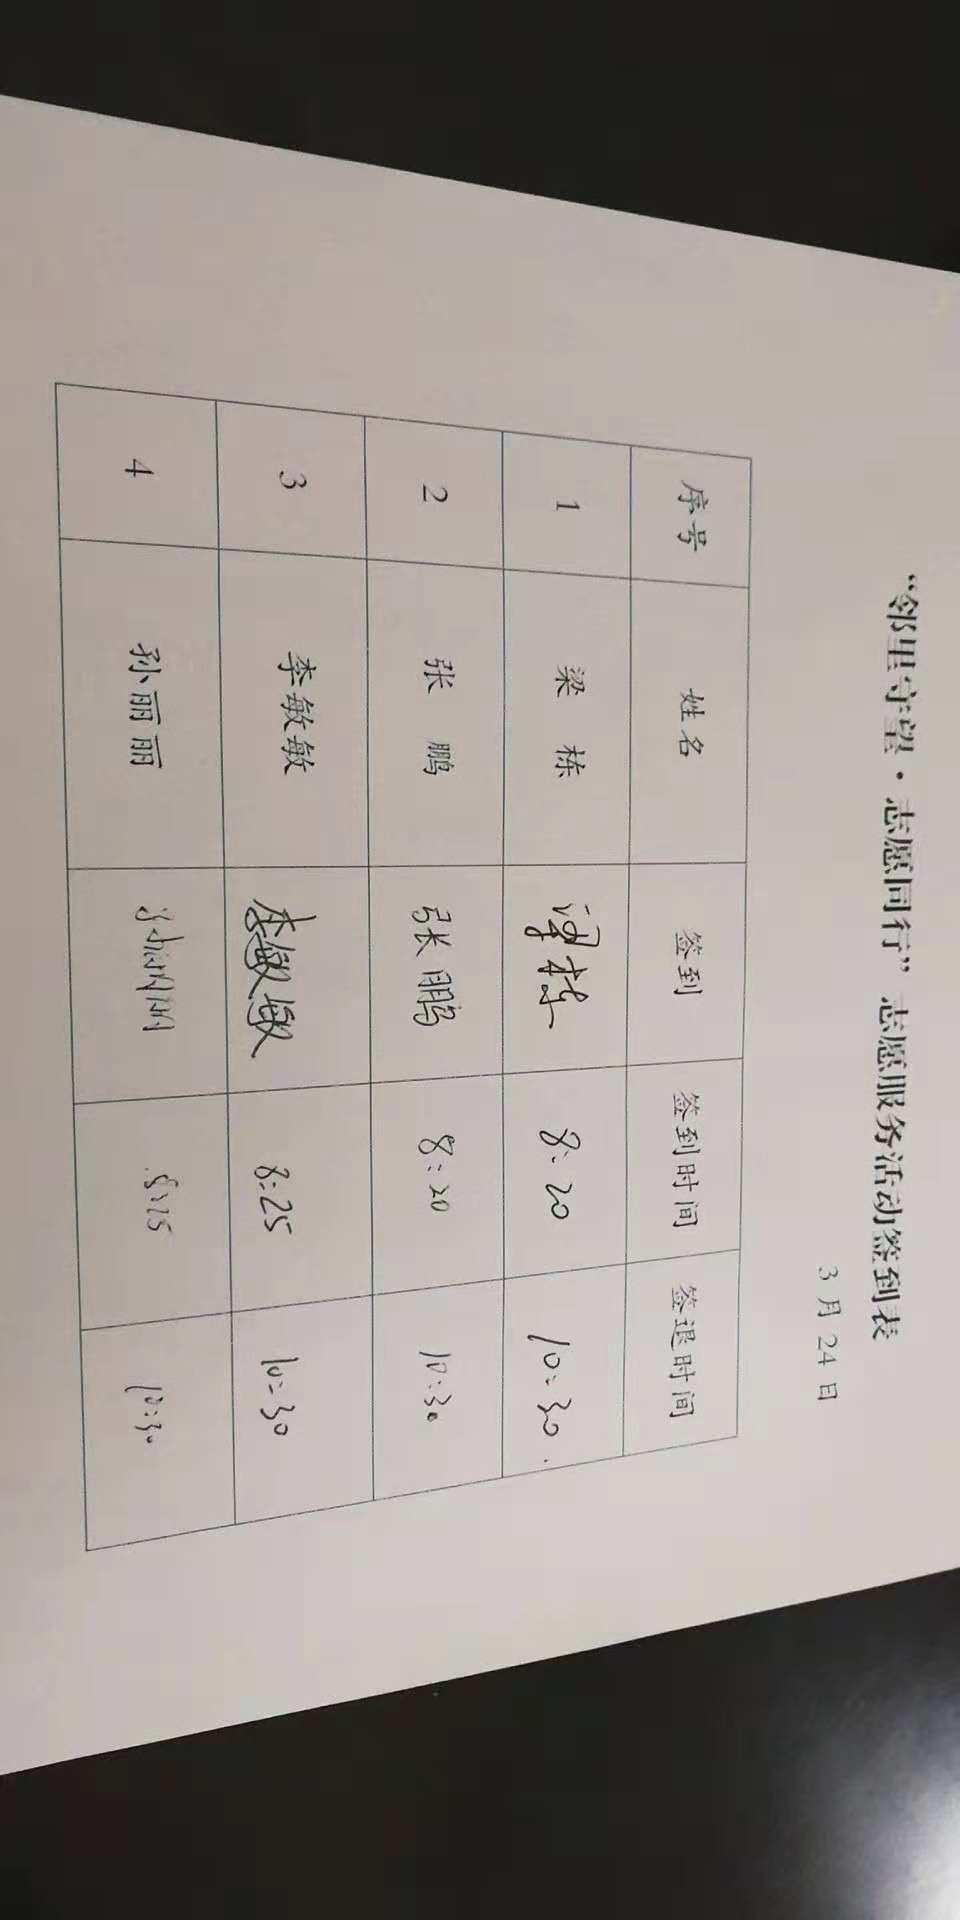 “邻里守望·志愿同行”志愿服务活动签到表
3月24日
序号 姓名 签到 签到时间 签退时间
1 梁栋 梁栋 8:20 10:30
2 张鹏 张鹏 8:20 10:30
3 李敏敏 李敏敏 8:25 10:30
4 孙丽丽 孙丽丽 8:25 10:30